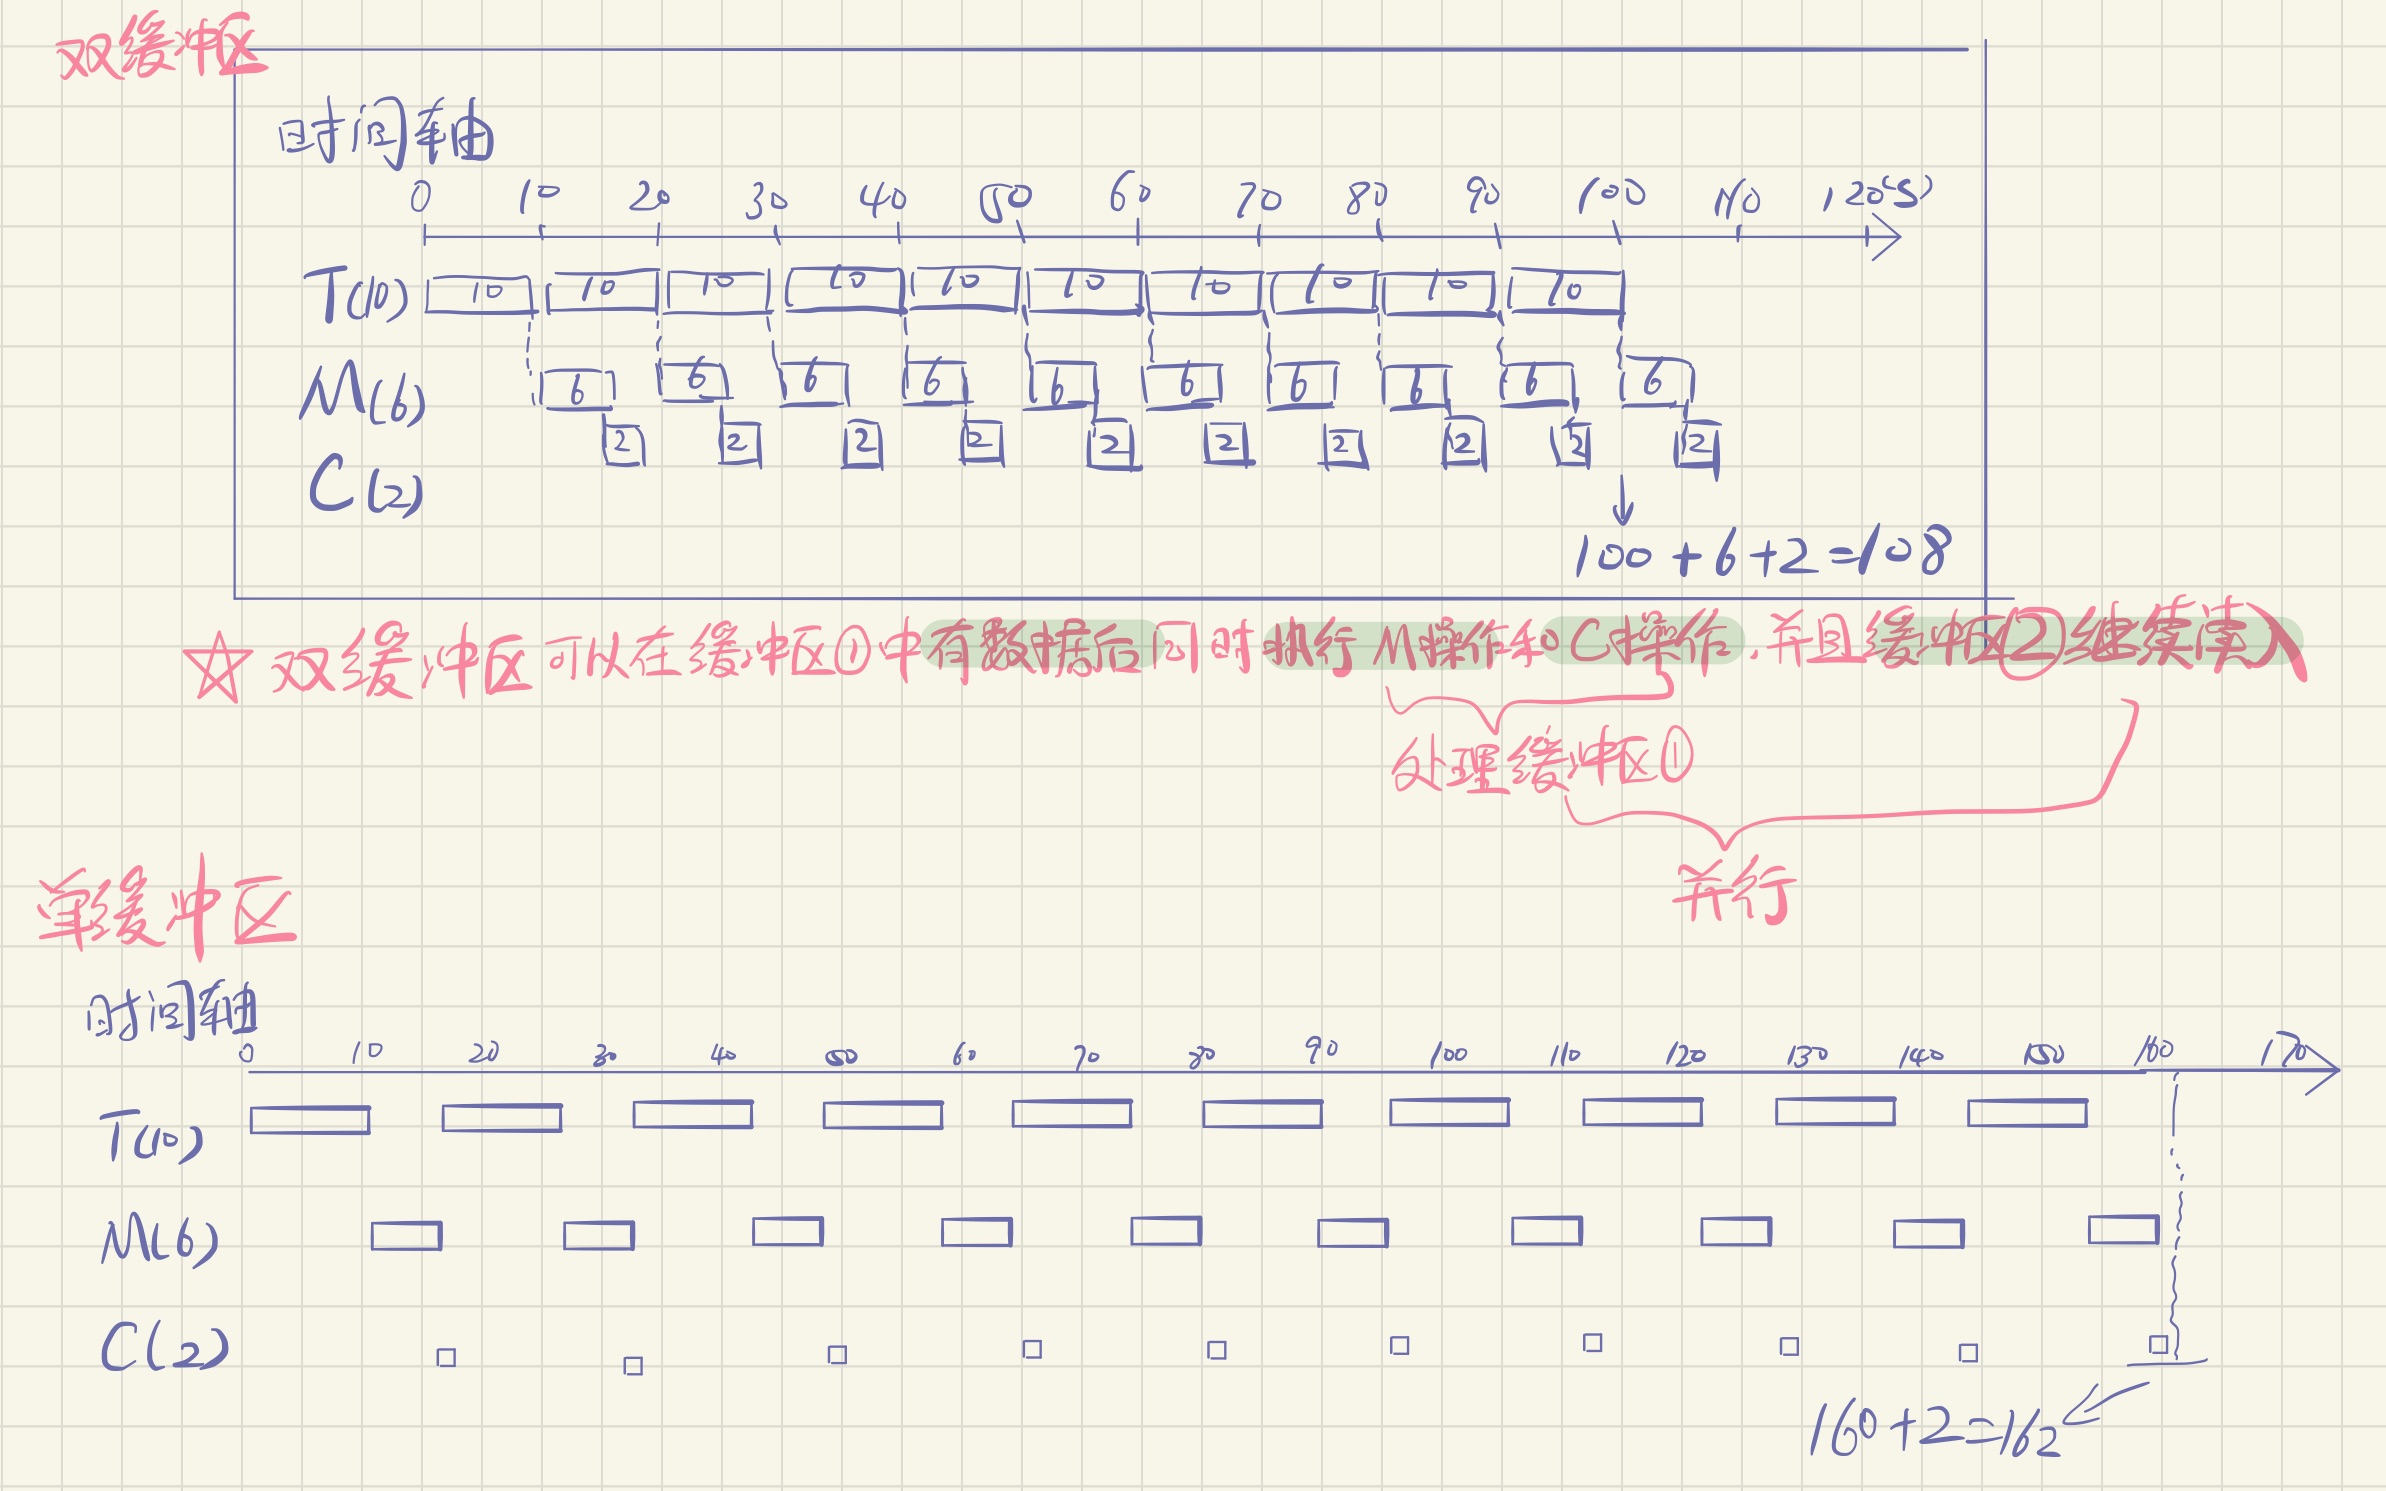 双缓冲区
时间轴
0 10 20 30 40 50 60 70 80 90 100 110 120(s)
T(10) 10 10 10 10 10 10 10 10 10 10
M(6) 6 6 6 6 6 6 6 6 6 6
C(2) 2 2 2 2 2 2 2 2 2 2
100+6+2=108
☆ 双缓冲区可以在缓冲区①中有数据后同时执行M操作和C操作,并且缓冲区②继续读入
处理缓冲区①
并行
单缓冲区
时间轴
0 10 20 30 40 50 60 70 80 90 100 110 120 130 140 150 160 170
T(10)
M(6)
C(2)
160+2=162